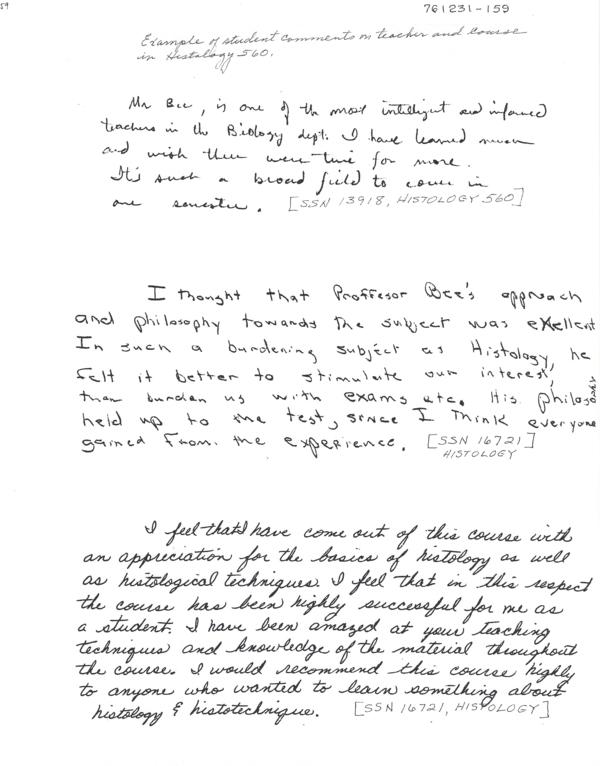 59
761231-159
Example of student comments on teacher and course
in Histology 560.
Mr Bee, is one of the most intelligent and informed
teachers in the Biology dept. I have learned much
and wish there were time for more.
It's such a broad field to cover in
one semester. [SSN 13918, HISTOLOGY 560]
I thought that Proffesor Bee's approach
and philosophy towards the subject was exellent
In such a burdening subject as Histology, he
felt it better to stimulate our interest,
than burden us with exams etc. His philosophy
held up to the test, since I think everyone
gained from the experience. [SSN 16721]
HISTOLOGY
I feel that I have come out of this course with
an appreciation for the basics of histology as well
as histological techniques. I feel that in this respect
the course has been highly successful for me as
a student. I have been amazed at your teaching
techniques and knowledge of the material throughout
the course. I would recommend this course highly
to anyone who wanted to learn something about
histology & histotechnique. [SSN 16721, HISTOLOGY]